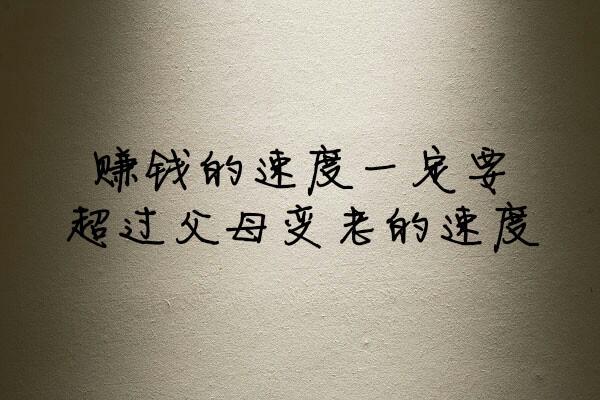 赚钱的速度一定要
超过父母变老的速度